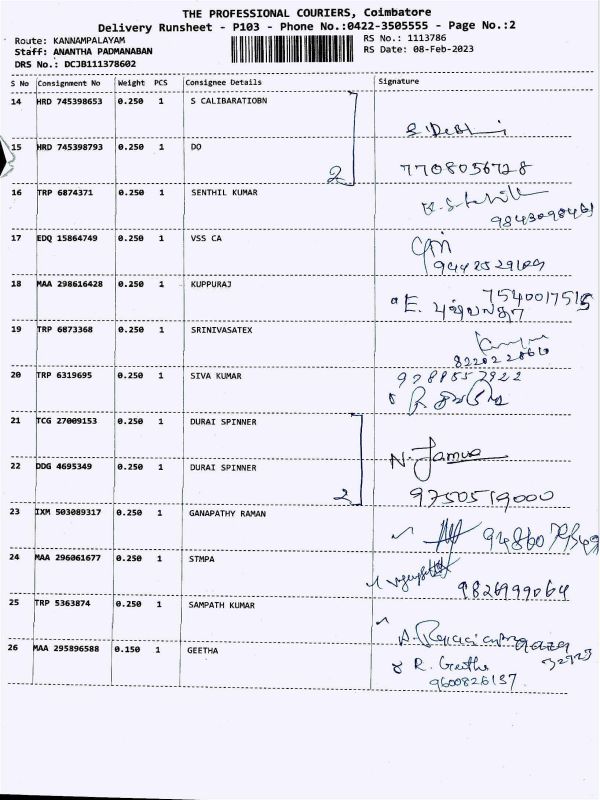 THE PROFESSIONAL COURIERS, Coimbatore
Delivery Runsheet - P103 - Phone No.:0422-3505555 - Page No.:2
Route: KANNAMPALAYAM
RS No.: 1113786
Staff: ANANTHA PADMANABAN
RS Date: 08-Feb-2023
DRS No.: DCJB111378602
S No Consignment No Weight PCS Consignee Details Signature
14 HRD 745398653 0.250 1 S CALIBARATIOBN
15 HRD 745398793 0.250 1 DO
2 7708056728
16 TRP 6874371 0.250 1 SENTHIL KUMAR
17 EDQ 15864749 0.250 1 VSS CA
18 MAA 298616428 0.250 1 KUPPURAJ
7540017515
E.
19 TRP 6873368 0.250 1 SRINIVASATEX
20 TRP 6319695 0.250 1 SIVA KUMAR
R
21 TCG 27009153 0.250 1 DURAI SPINNER
22 DDG 4695349 0.250 1 DURAI SPINNER
N.
2 9750519000
23 IXM 503089317 0.250 1 GANAPATHY RAMAN
24 MAA 296061677 0.250 1 STMPA
9826999064
25 TRP 5363874 0.250 1 SAMPATH KUMAR
26 MAA 295896588 0.150 1 GEETHA
R. Geetha
9600826137